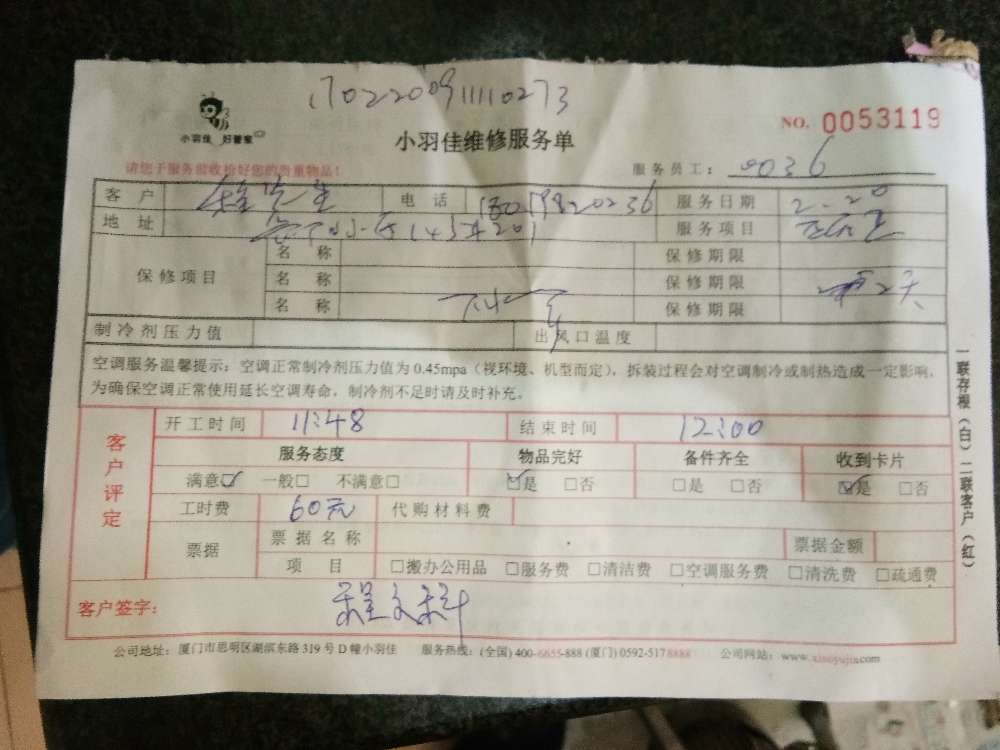 17022009111110273
小羽佳 好管家
小羽佳维修服务单
NO. 0053119
请您于服务前收拾好您的贵重物品!
服务员工: 0036
客户 程先生 电话 服务日期 2-20
地址 服务项目
保修项目 名称 保修期限
名称 保修期限
名称 保修期限
制冷剂压力值 出风口温度
空调服务温馨提示:空调正常制冷剂压力值为0.45mpa(视环境、机型而定),拆装过程会对空调制冷或制热造成一定影响,
为确保空调正常使用延长空调寿命,制冷剂不足时请及时补充。
客户评定
开工时间 11:48 结束时间 12:00
服务态度 物品完好 备件齐全 收到卡片
满意☑ 一般□ 不满意□ ☑是 □否 □是 □否 ☑是 □否
工时费 60元 代购材料费
票据 票据名称 票据金额
项目 □搬办公用品 □服务费 □清洁费 □空调服务费 □清洗费 □疏通费
客户签字: 程文科
公司地址:厦门市思明区湖滨东路319号D幢小羽佳 服务热线:(全国)400-6655-888 (厦门)0592-5178888 公司网站:www.xiaoyujia.com
一联存根(白)二联客户(红)